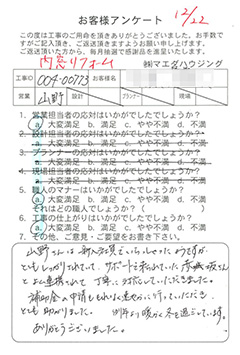 お客様アンケート 12/22
この度は工事のご用命を頂きありがとうございました。お手数で
すがご記入頂き、ご返送頂きますようお願い申し上げます。
ご返送頂いた方から、毎月抽選で感謝品を進呈いたします。
内窓リフォーム ㈱マエダハウジング
工事ID 004-00773 お客様名
営業 山野 設計 プランナー 現場
1. 営業担当者の応対はいかがでしたでしょうか?
a. 大変満足 b. 満足 c. やや不満 d. 不満
2. 設計担当者の応対はいかがでしたでしょうか?
a. 大変満足 b. 満足 c. やや不満 d. 不満
3. プランナーの応対はいかがでしたでしょうか?
a. 大変満足 b. 満足 c. やや不満 d. 不満
4. 現場担当者の応対はいかがでしたでしょうか?
a. 大変満足 b. 満足 c. やや不満 d. 不満
5. 職人のマナーはいかがでしたでしょうか?
a. 大変満足 b. 満足 c. やや不満 d. 不満
それはどの職人でしょうか? ( )
6. 工事の仕上がりはいかがでしたでしょうか?
a. 大変満足 b. 満足 c. やや不満 d. 不満
7. その他、ご意見・ご要望をお書き下さい。
山野さんは 新入社員でいらっしゃったようですが
とてもしっかりされていて、サポートで来られていた
とよく連携されて、丁寧に対応していただきました。
補助金の申請もとれもれなく進めて行っていただき
とても助かりました。 例年より暖かく冬を過ごしています。
ありがとうございました。